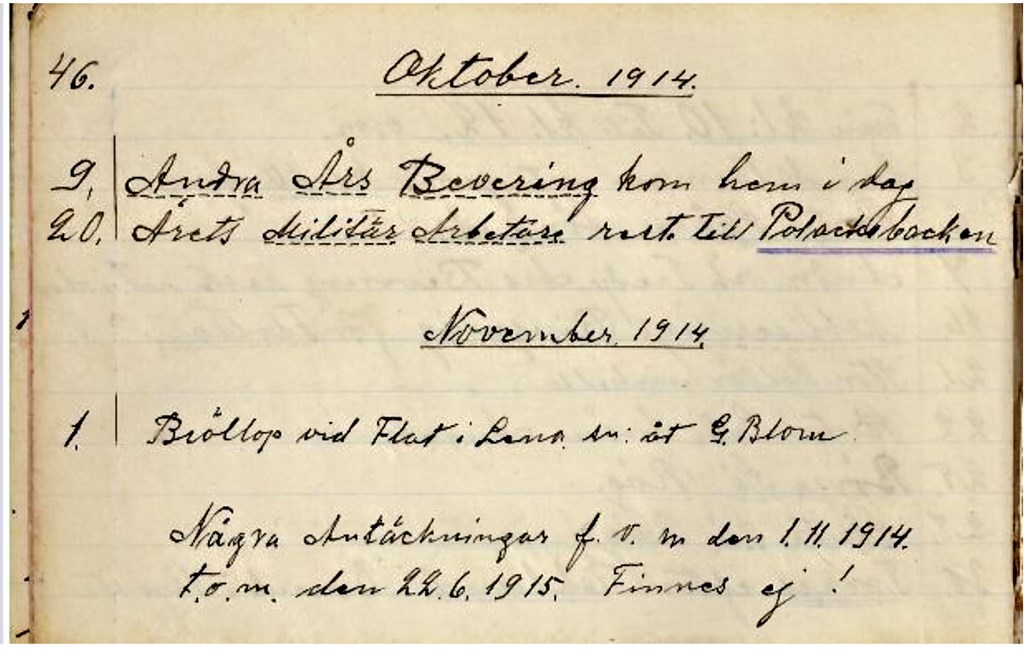 46. Oktober. 1914.
9. Andra Års Bevering kom hem i dag
20. Årets Militär Arbetare rest. till Polacksbacken
November. 1914.
1. Bröllop vid Flat i Lena sn: åt G. Blom
Några Antäckningar f. o. m den 1. 11. 1914.
t.o.m. den 22.6. 1915. Finnes ej!